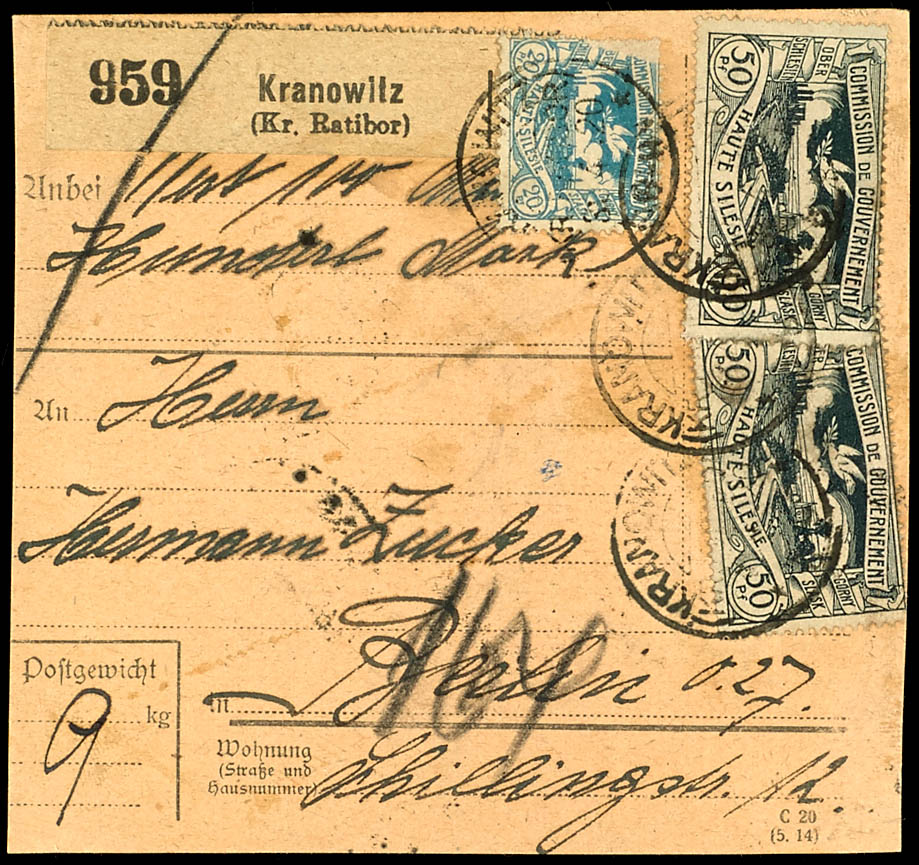 959
Kranowitz
(Kr. Ratibor)
Anbei Wert 100
Hundert Mark
An Herrn
Hermann Zucker
in Berlin O.27.
Postgewicht
9 kg
Wohnung
(Straße und
Hausnummer)
Schillingstr. 12.
C 20
(5. 14)
20
Pf
20
COMMISSION DE GOUVERNEMENT
OBER
SCHLESIEN
50
Pf
HAUTE SILESIE
GORNY
SLASK
50
COMMISSION DE GOUVERNEMENT
OBER
SCHLESIEN
50
HAUTE SILESIE
GORNY
SLASK
50
Pf
KRANOWITZ
KRANOWITZ